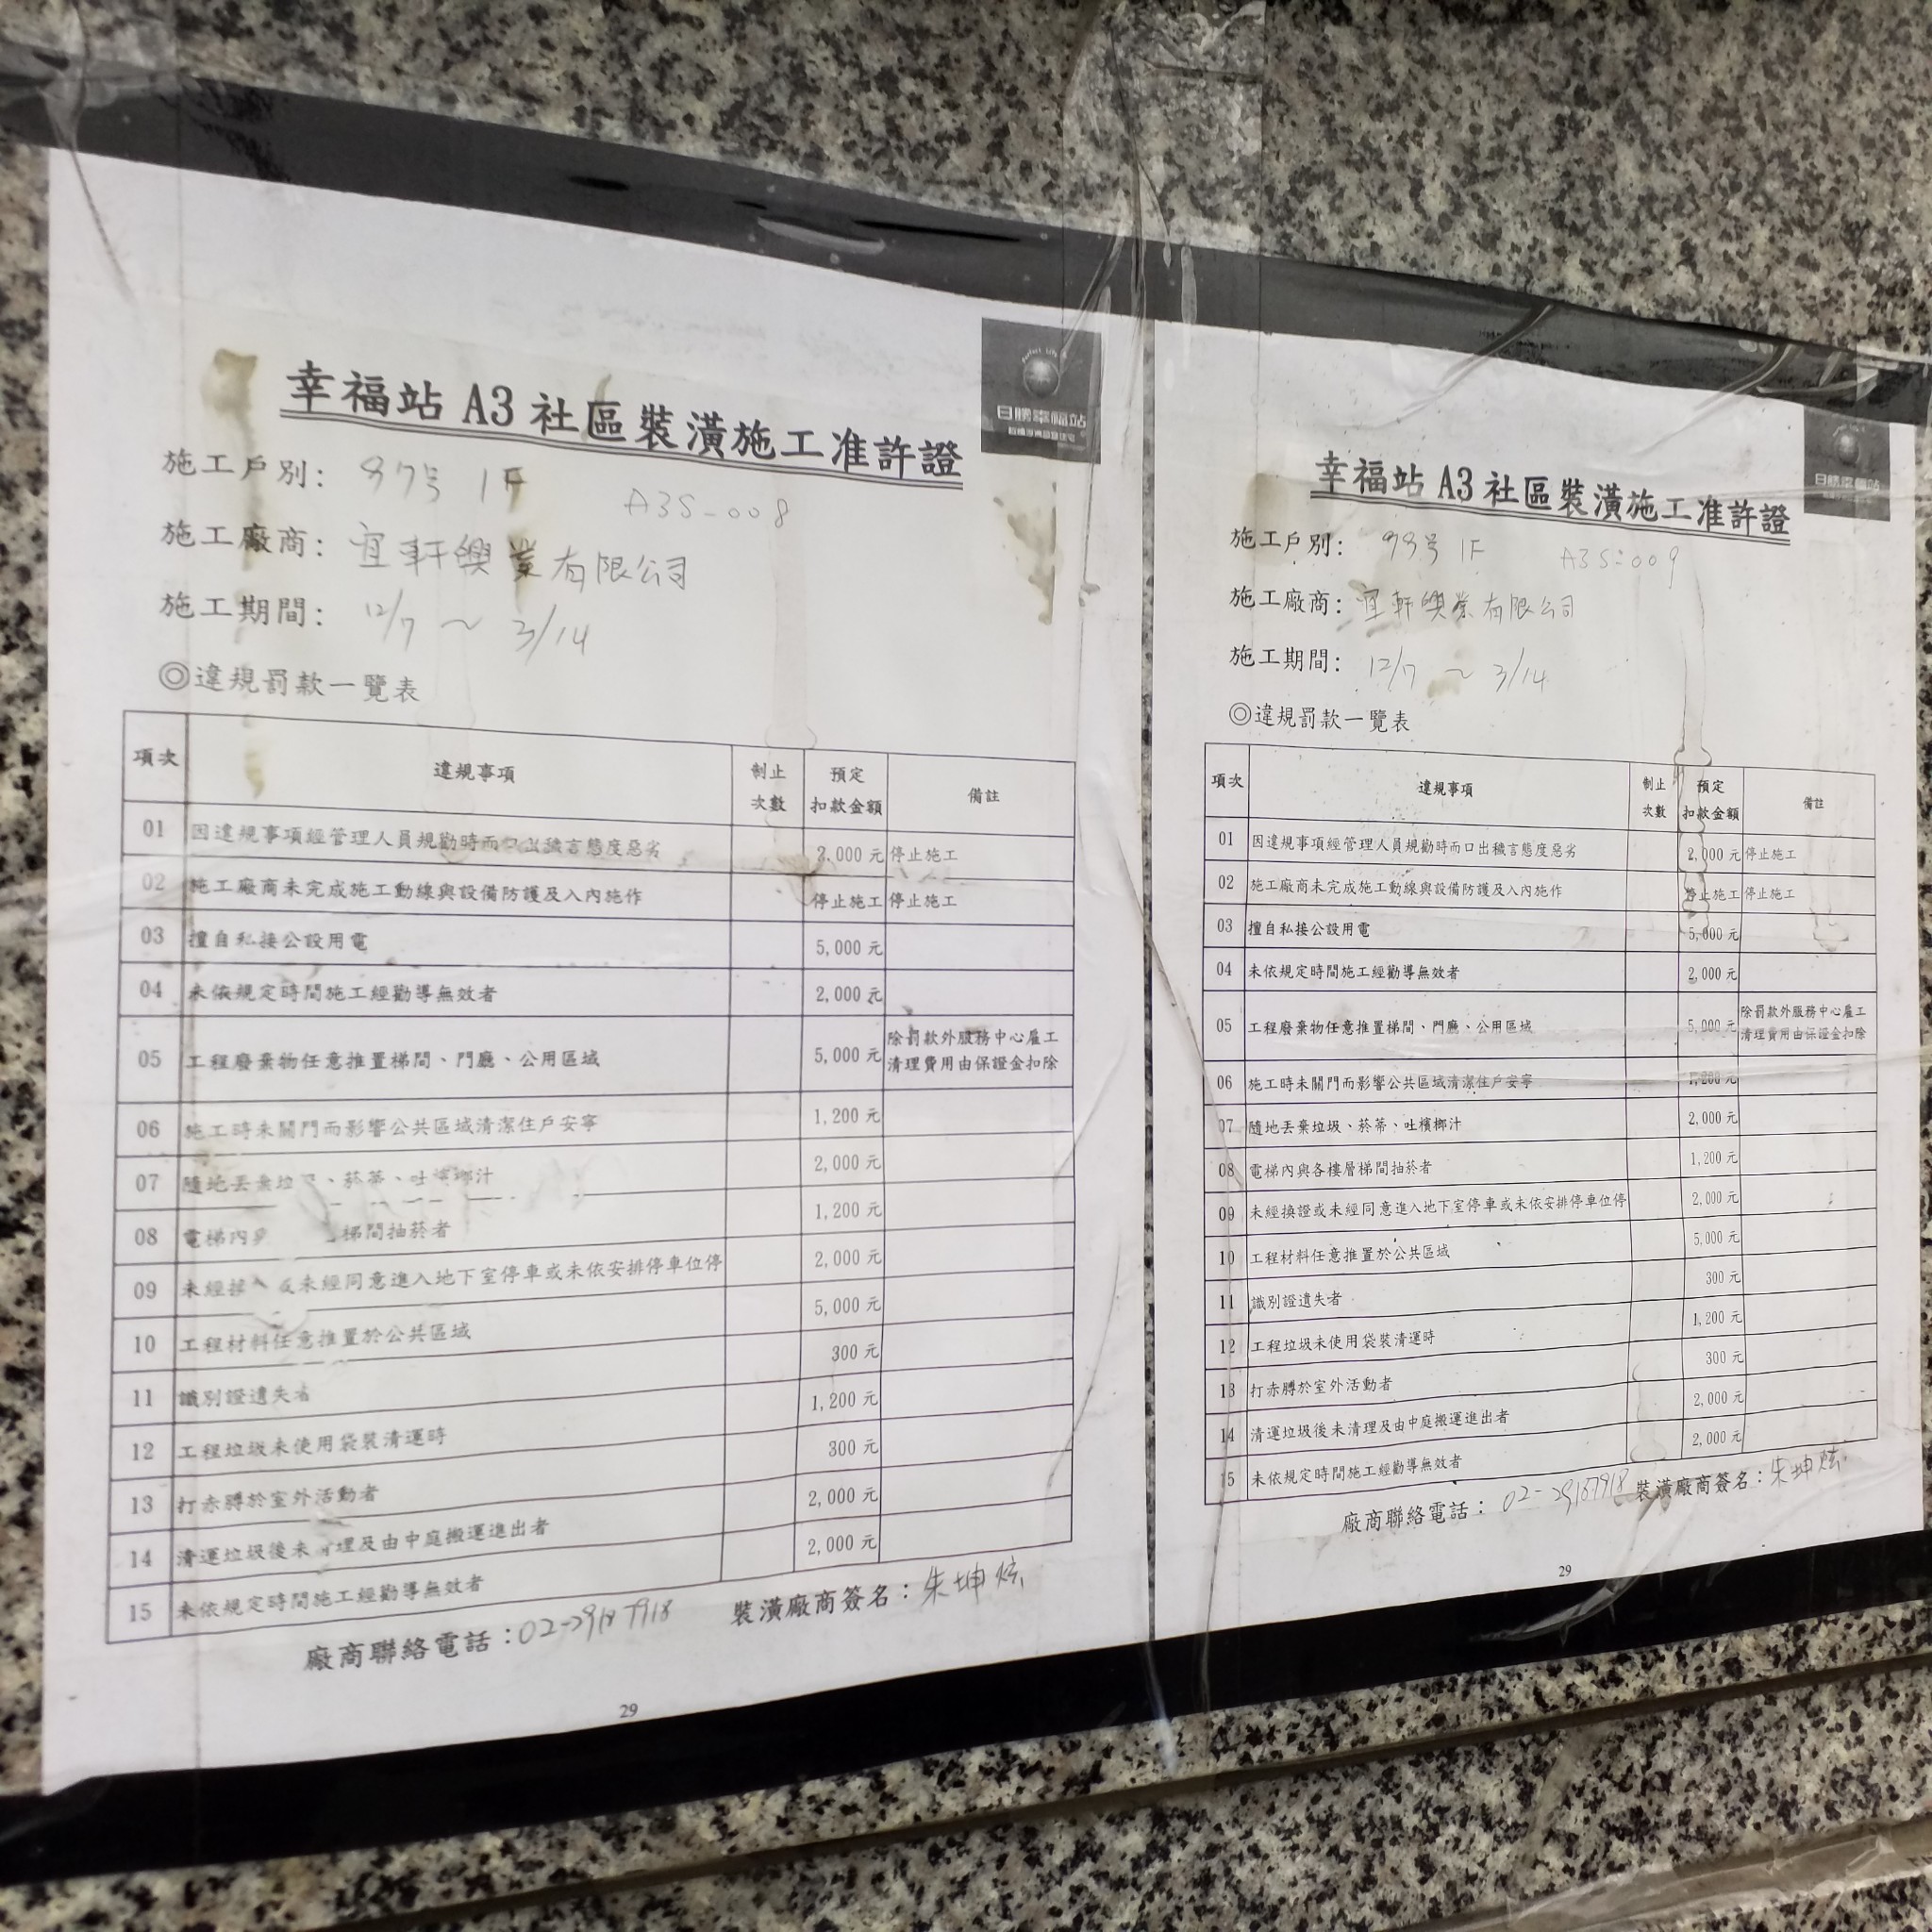 幸福站 A3 社區裝潢施工准許證
日勝幸福站
施工戶別: 97号 1F A3S-008
施工廠商: 宜軒興業有限公司
施工期間: 12/7 ~ 3/14
◎違規罰款一覽表
項次 違規事項 制止次數 預定扣款金額 備註
01 因違規事項經管理人員規勸時而口出穢言態度惡劣 2,000 元 停止施工
02 施工廠商未完成施工動線與設備防護及入內施作 停止施工 停止施工
03 擅自私接公設用電 5,000 元
04 未依規定時間施工經勸導無效者 2,000 元
05 工程廢棄物任意推置梯間、門廳、公用區域 5,000 元 除罰款外服務中心雇工清理費用由保證金扣除
06 施工時未關門而影響公共區域清潔住戶安寧 1,200 元
07 隨地丟棄垃、菸蒂、吐檳榔汁 2,000 元
08 電梯內 梯間抽菸者 1,200 元
09 未經換 或未經同意進入地下室停車或未依安排停車位停 2,000 元
10 工程材料任意推置於公共區域 5,000 元
11 識別證遺失者 300 元
12 工程垃圾未使用袋裝清運時 1,200 元
13 打赤膊於室外活動者 300 元
14 清運垃圾後未清理及由中庭搬運進出者 2,000 元
15 未依規定時間施工經勸導無效者 2,000 元
廠商聯絡電話：02-29187918 裝潢廠商簽名：朱坤炫
29
幸福站 A3 社區裝潢施工准許證
日勝幸福站
施工戶別: 99号 1F A3S-009
施工廠商: 宜軒興業有限公司
施工期間: 12/7 ~ 3/14
◎違規罰款一覽表
項次 違規事項 制止次數 預定扣款金額 備註
01 因違規事項經管理人員規勸時而口出穢言態度惡劣 2,000 元 停止施工
02 施工廠商未完成施工動線與設備防護及入內施作 停止施工 停止施工
03 擅自私接公設用電 5,000 元
04 未依規定時間施工經勸導無效者 2,000 元
05 工程廢棄物任意推置梯間、門廳、公用區域 5,000 元 除罰款外服務中心雇工清理費用由保證金扣除
06 施工時未關門而影響公共區域清潔住戶安寧 1,200 元
07 隨地丟棄垃圾、菸蒂、吐檳榔汁 2,000 元
08 電梯內與各樓層梯間抽菸者 1,200 元
09 未經換證或未經同意進入地下室停車或未依安排停車位停 2,000 元
10 工程材料任意推置於公共區域 5,000 元
11 識別證遺失者 300 元
12 工程垃圾未使用袋裝清運時 1,200 元
13 打赤膊於室外活動者 300 元
14 清運垃圾後未清理及由中庭搬運進出者 2,000 元
15 未依規定時間施工經勸導無效者 2,000 元
廠商聯絡電話：02-29187918 裝潢廠商簽名：朱坤炫
29